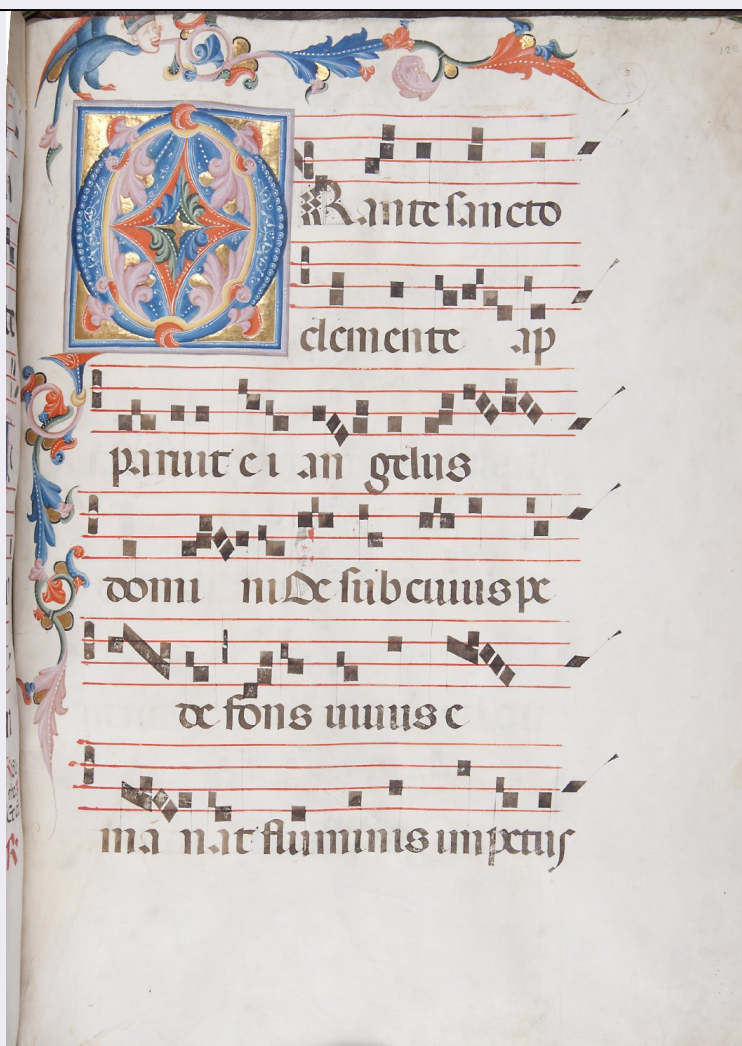 ORante sancto
clemente ap
paruit e i an gelus
domi ni De sub cuius pe
de fons uiuus e
ma nat fluminis impetus